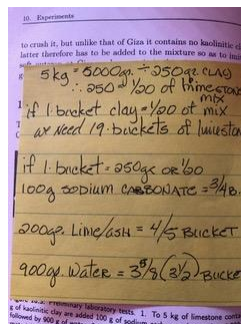 10. Experiments
to crush it, but unlike that of Giza it contains no kaolinitic cl
latter therefore has to be added to the mixture so as to imit
5kg = 5000gr. ÷ 250gr CLAY
∴ 250 = 1/20 of limestone
mix
if 1 bucket clay = 1/20 of mix
we need 19 buckets of limeston
if 1 bucket = 250gr OR 1/20
100g SODIUM CARBONATE = 3/4 B.
200gr. Lime/ASH = 4/5 BUCKET
900gr. Water = 3 5/8 (3 1/2) BUCKE
Preliminary laboratory tests. 1. To 5 kg of limestone
g of kaolinitic clay are added 100 g of sodium
followed by 900 g of